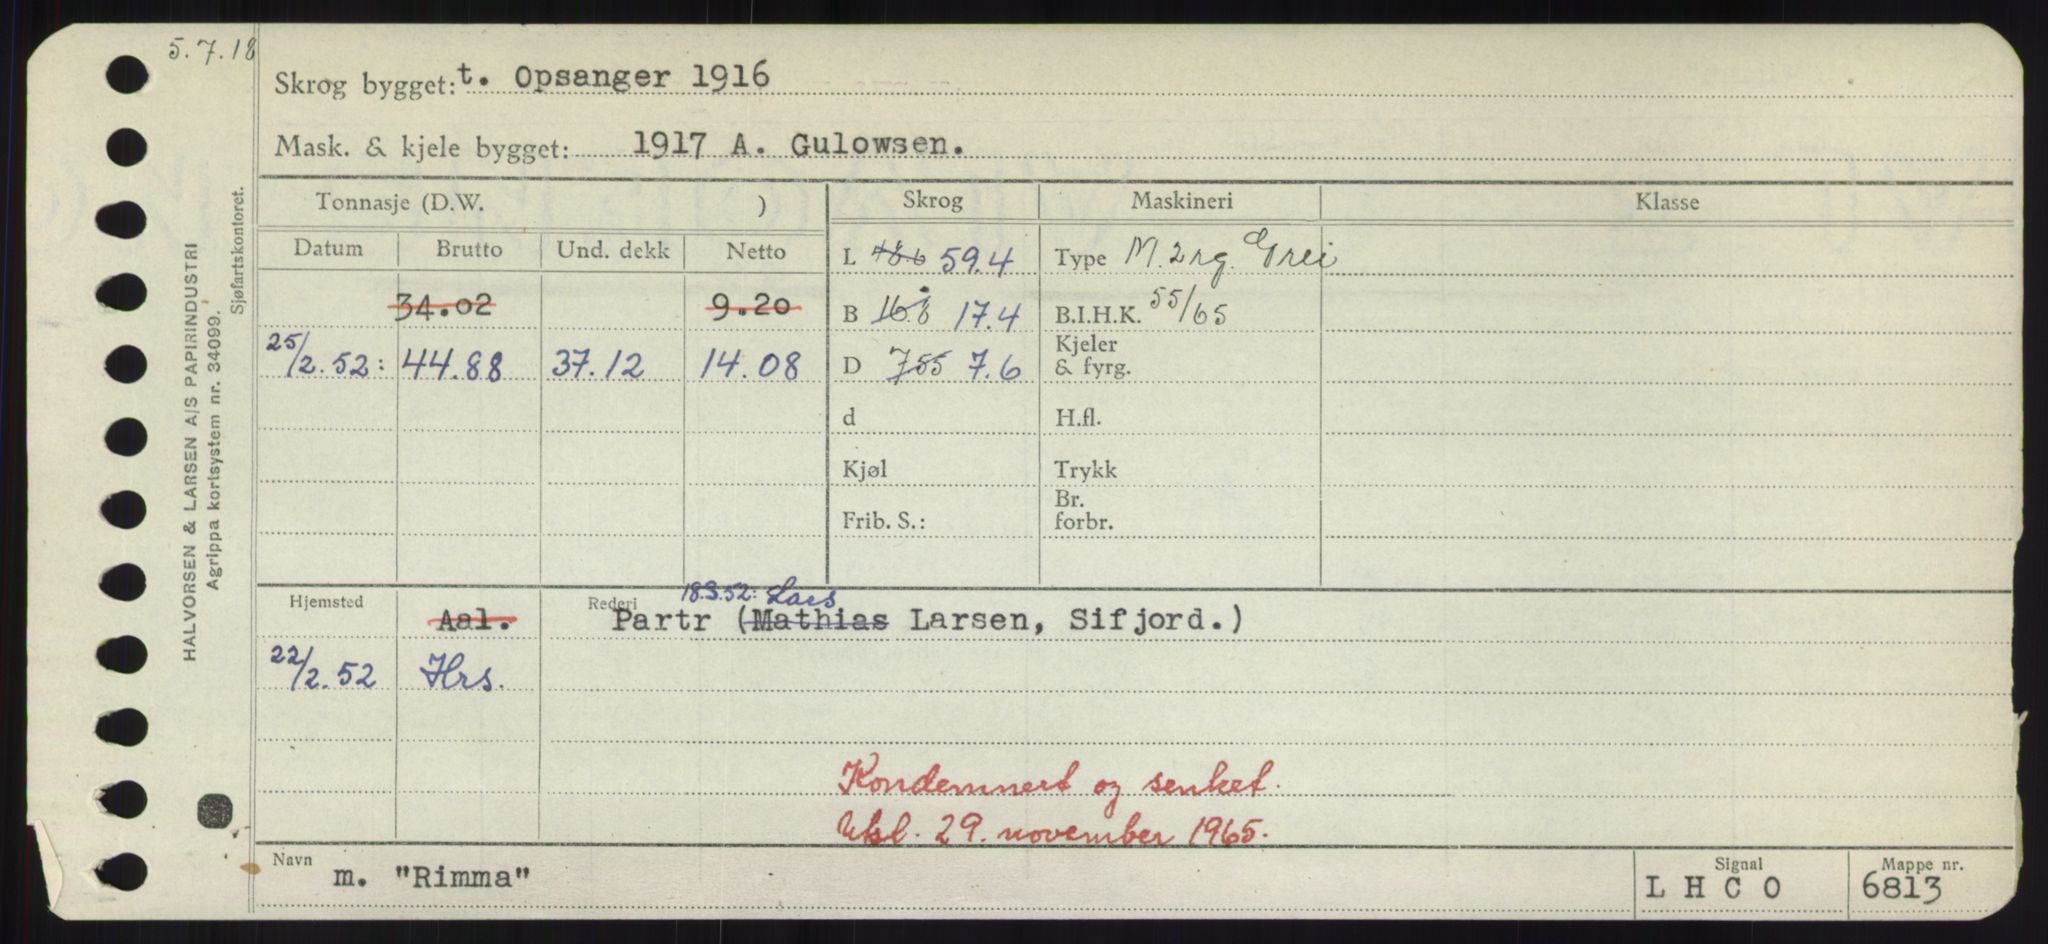 5.7.18
Skrog bygget: t. Opsanger 1916
Mask. & kjele bygget: 1917 A. Gulowsen.
Tonnasje (D.W. ) Skrog Maskineri Klasse
Datum Brutto Und. dekk Netto L 59.4 Type M. 2 rg. Grei
34.02 9.20 B 16.8 17.4 B.I.H.K. 55/65
25/2.52: 44.88 37.12 14.08 D 755 7.6 Kjeler & fyrg.
d H.fl.
Kjøl Trykk
Frib. S.: Br. forbr.
Hjemsted Aal. Rederi 18.3.52: Lars
Partr (Mathias Larsen, Sifjord.)
22/2.52 Hrs.
Kondemnert og senket.
29. november 1965.
Navn m. "Rimma" Signal L H C O Mappe nr. 6813
HALVORSEN & LARSEN A/S PAPIRINDUSTRI
Agrippa kortsystem nr. 34099.
Sjøfartskontoret.